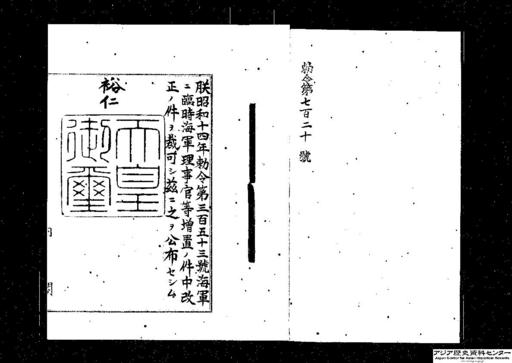 勅令第七百二十號
朕昭和十四年勅令第三百五十三號海軍
ニ臨時海軍理事官等増置ノ件中改
正ノ件ヲ裁可シ茲ニ之ヲ公布セシム
裕仁
天皇
御璽
内閣
アジア歴史資料センター
Japan Center for Asian Historical Records